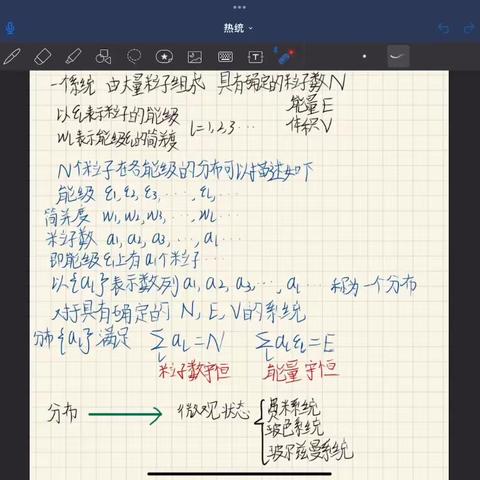 热统
一个系统 由大量粒子组成 具有确定的粒子数N
能量E
体积V
以εl表示粒子的能级
wl表示能级εl的简并度 l=1,2,3···
N个粒子在各能级的分布可以描述如下
能级 ε1, ε2, ε3, ···, εl, ···
简并度 w1, w2, w3, ···, wl ···
粒子数 a1, a2, a3, ···, al ···
即能级εl上有al个粒子···
以{al}表示数列 a1, a2, a3, ···, al ··· 称为一个分布
对于具有确定的 N, E, V的系统
分布{al}满足 ∑l al = N ∑l alεl = E
粒子数守恒 能量守恒
分布 → 微观状态 { 费米系统
玻色系统
玻尔兹曼系统